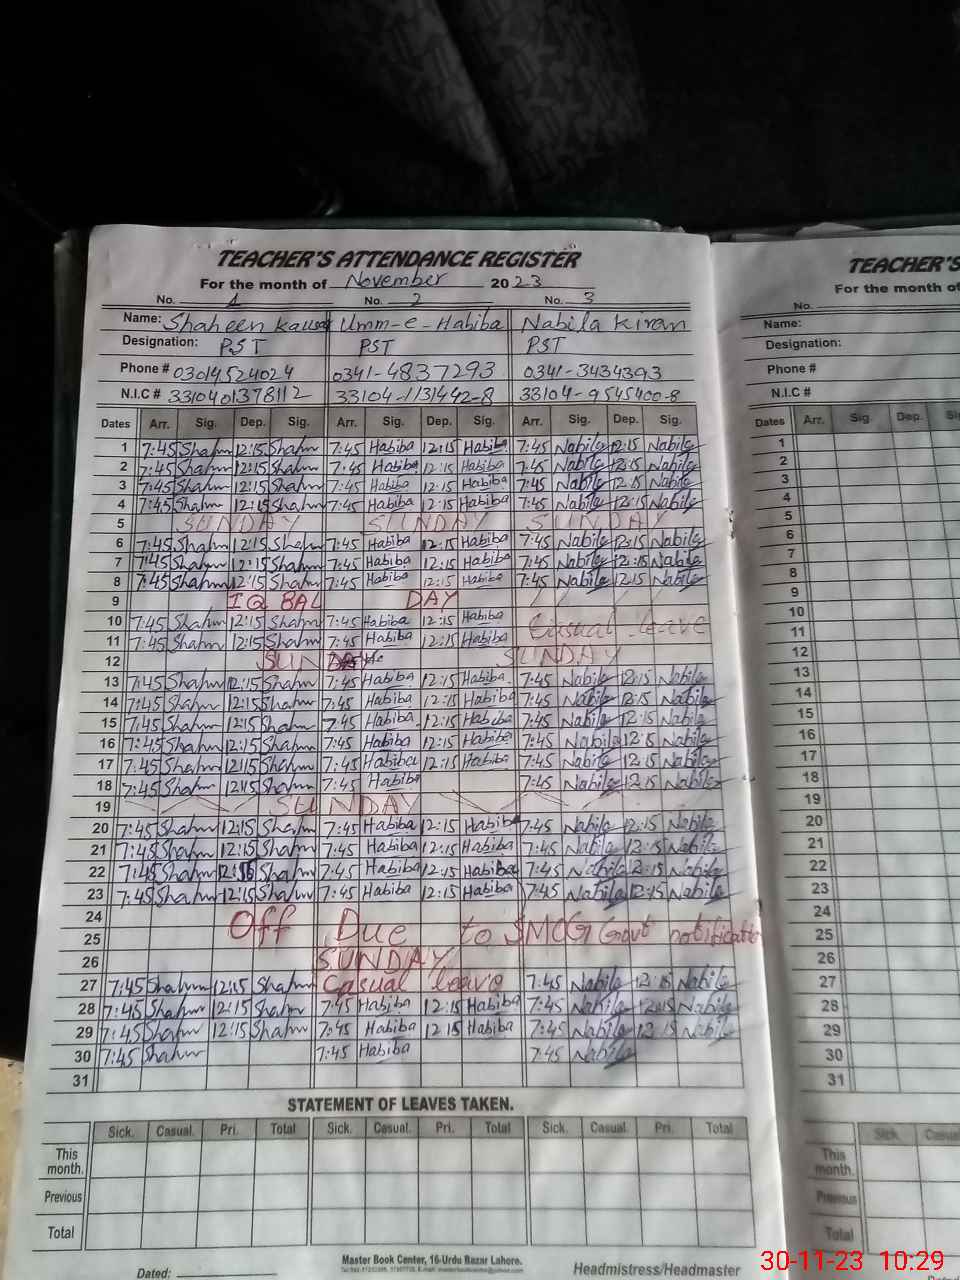 TEACHER'S ATTENDANCE REGISTER
For the month of November 2023
No. 1 No. 2 No. 3
Name: Shaheen Kausar Umm-e-Habiba Nabila Kiran
Designation: PST PST PST
Phone # 03014524024 0341-4837293 0341-3434393
N.I.C # 3310401378112 33104-1131442-8 33104-9545400-8
Dates Arr. Sig. Dep. Sig. Arr. Sig. Dep. Sig. Arr. Sig. Dep. Sig.
1 7:45 Shahm 12:15 Shahm 7:45 Habiba 12:15 Habiba 7:45 Nabila 12:15 Nabila
2 7:45 Shahm 12:15 Shahm 7:45 Habiba 12:15 Habiba 7:45 Nabila 12:15 Nabila
3 7:45 Shahm 12:15 Shahm 7:45 Habiba 12:15 Habiba 7:45 Nabila 12:15 Nabila
4 7:45 Shahm 12:15 Shahm 7:45 Habiba 12:15 Habiba 7:45 Nabila 12:15 Nabila
5 SUNDAY SUNDAY SUNDAY
6 7:45 Shahm 12:15 Shahm 7:45 Habiba 12:15 Habiba 7:45 Nabila 12:15 Nabila
7 7:45 Shahm 12:15 Shahm 7:45 Habiba 12:15 Habiba 7:45 Nabila 12:15 Nabila
8 7:45 Shahm 12:15 Shahm 7:45 Habiba 12:15 Habiba 7:45 Nabila 12:15 Nabila
9 IQBAL DAY
10 7:45 Shahm 12:15 Shahm 7:45 Habiba 12:15 Habiba Casual leave
11 7:45 Shahm 12:15 Shahm 7:45 Habiba 12:15 Habiba
12 SUNDAY SUNDAY
13 7:45 Shahm 12:15 Shahm 7:45 Habiba 12:15 Habiba 7:45 Nabila 12:15 Nabila
14 7:45 Shahm 12:15 Shahm 7:45 Habiba 12:15 Habiba 7:45 Nabila 12:15 Nabila
15 7:45 Shahm 12:15 Shahm 7:45 Habiba 12:15 Habiba 7:45 Nabila 12:15 Nabila
16 7:45 Shahm 12:15 Shahm 7:45 Habiba 12:15 Habiba 7:45 Nabila 12:15 Nabila
17 7:45 Shahm 12:15 Shahm 7:45 Habiba 12:15 Habiba 7:45 Nabila 12:15 Nabila
18 7:45 Shahm 12:15 Shahm 7:45 Habiba 7:45 Nabila 12:15 Nabila
19 SUNDAY
20 7:45 Shahm 12:15 Shahm 7:45 Habiba 12:15 Habiba 7:45 Nabila 12:15 Nabila
21 7:45 Shahm 12:15 Shahm 7:45 Habiba 12:15 Habiba 7:45 Nabila 12:15 Nabila
22 7:45 Shahm 12:15 Shahm 7:45 Habiba 12:15 Habiba 7:45 Nabila 12:15 Nabila
23 7:45 Shahm 12:15 Shahm 7:45 Habiba 12:15 Habiba 7:45 Nabila 12:15 Nabila
24
25 Off Due to SMOG Govt notification
26 SUNDAY
27 7:45 Shahm 12:15 Shahm Casual leave 7:45 Nabila 12:15 Nabila
28 7:45 Shahm 12:15 Shahm 7:45 Habiba 12:15 Habiba 7:45 Nabila 12:15 Nabila
29 7:45 Shahm 12:15 Shahm 7:45 Habiba 12:15 Habiba 7:45 Nabila 12:15 Nabila
30 7:45 Shahm 7:45 Habiba 7:45 Nabila
31
STATEMENT OF LEAVES TAKEN.
Sick. Casual. Pri. Total Sick. Casual. Pri. Total Sick. Casual. Pri. Total
This month.
Previous
Total
Master Book Center, 16-Urdu Bazar Lahore.
Dated: Headmistress/Headmaster
TEACHER'S
For the month of
No.
Name:
Designation:
Phone #
N.I.C #
Dates Arr. Sig. Dep.
1
2
3
4
5
6
7
8
9
10
11
12
13
14
15
16
17
18
19
20
21
22
23
24
25
26
27
28
29
30
31
Sick.
This month.
Previous
Total
30-11-23 10:29